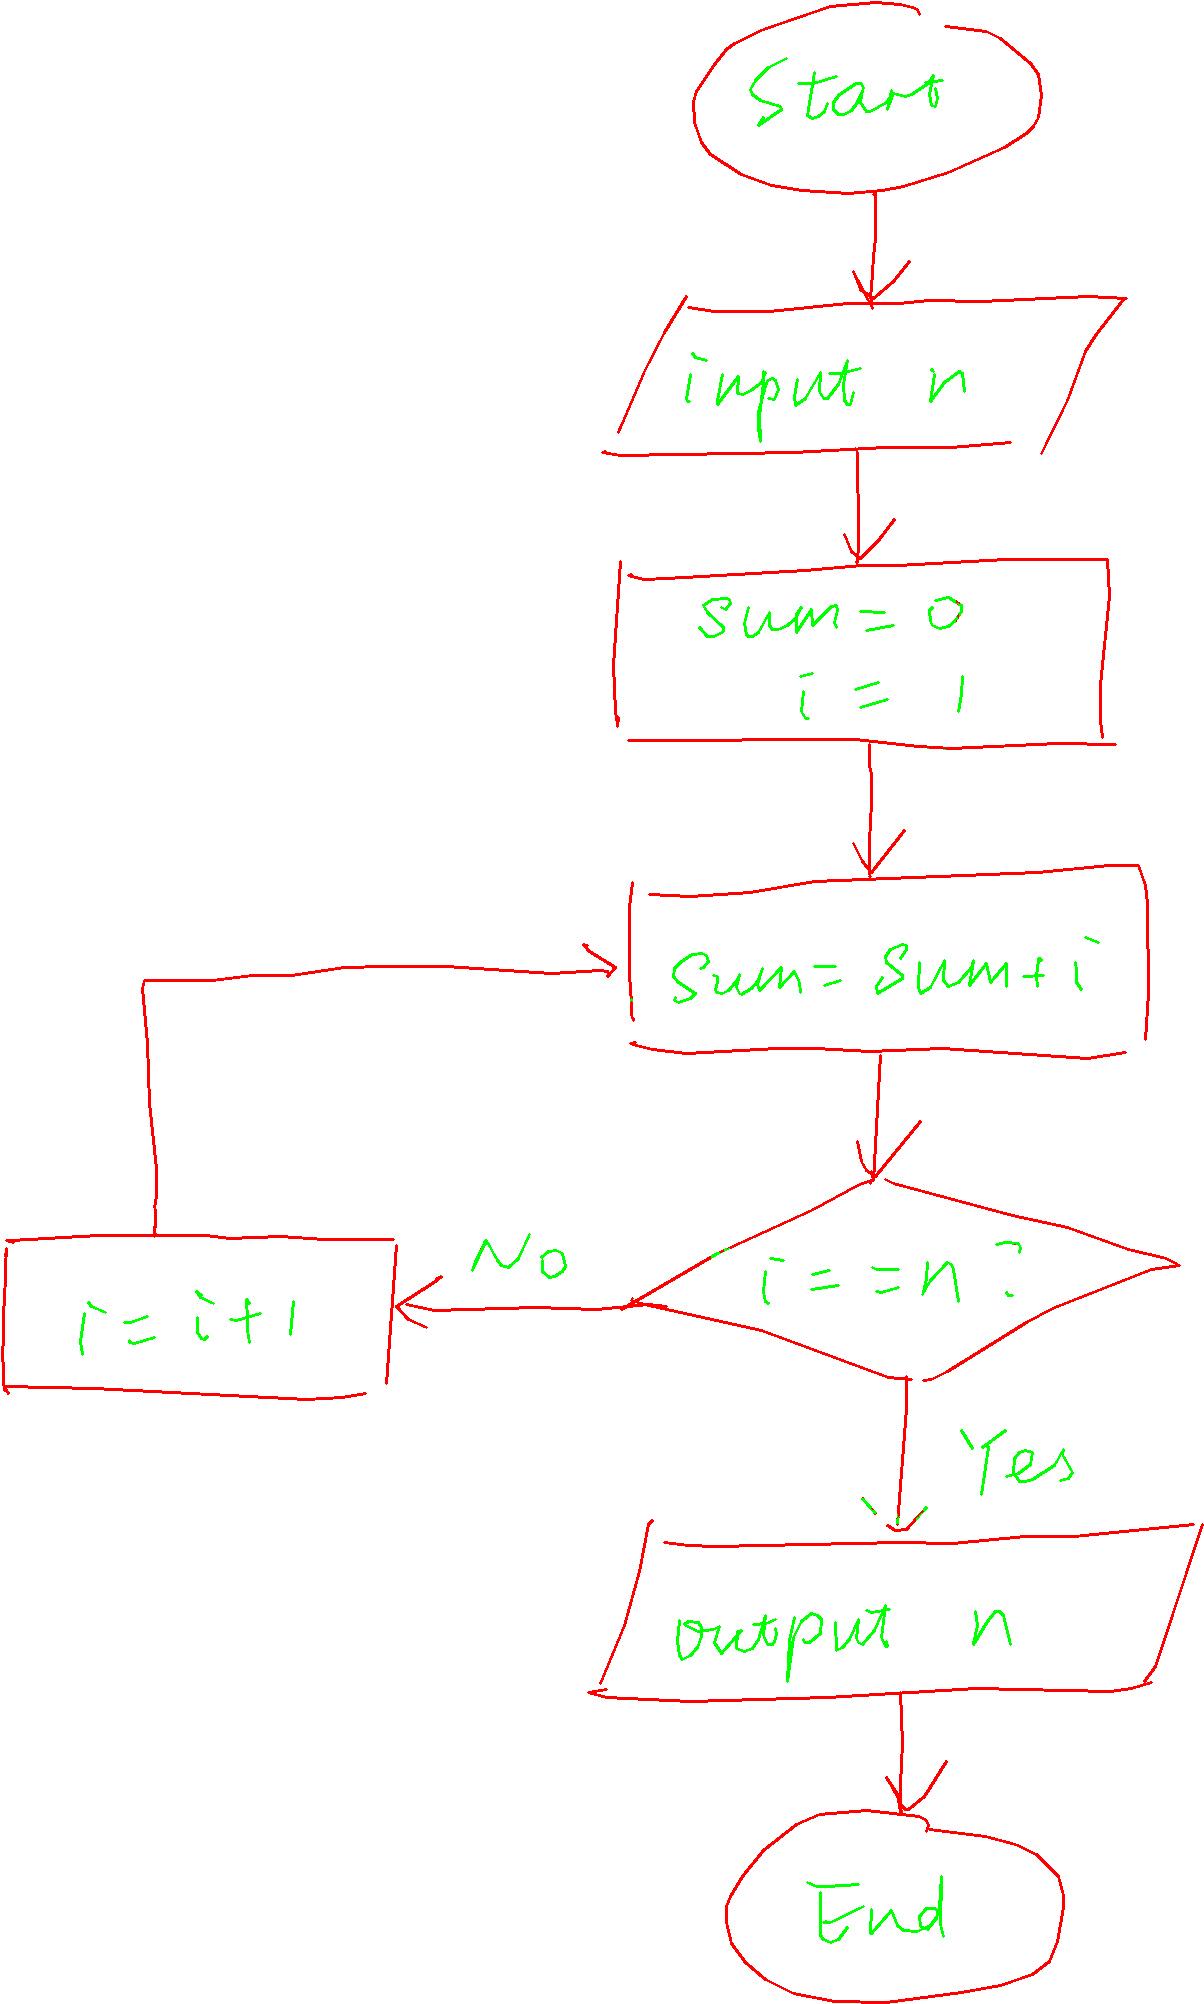 Start
input n
sum = 0
i = 1
Sum = Sum + i
i = = n ?
No
i = i + 1
Yes
output n
End